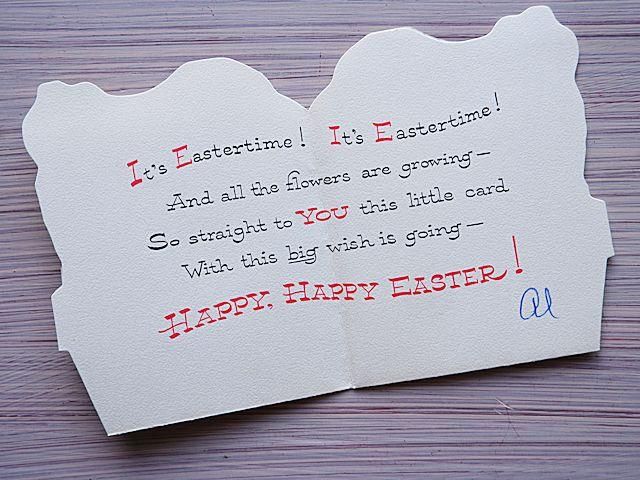 It's Eastertime! It's Eastertime!
And all the flowers are growing—
So straight to YOU this little card
With this big wish is going—
HAPPY, HAPPY EASTER!
Al